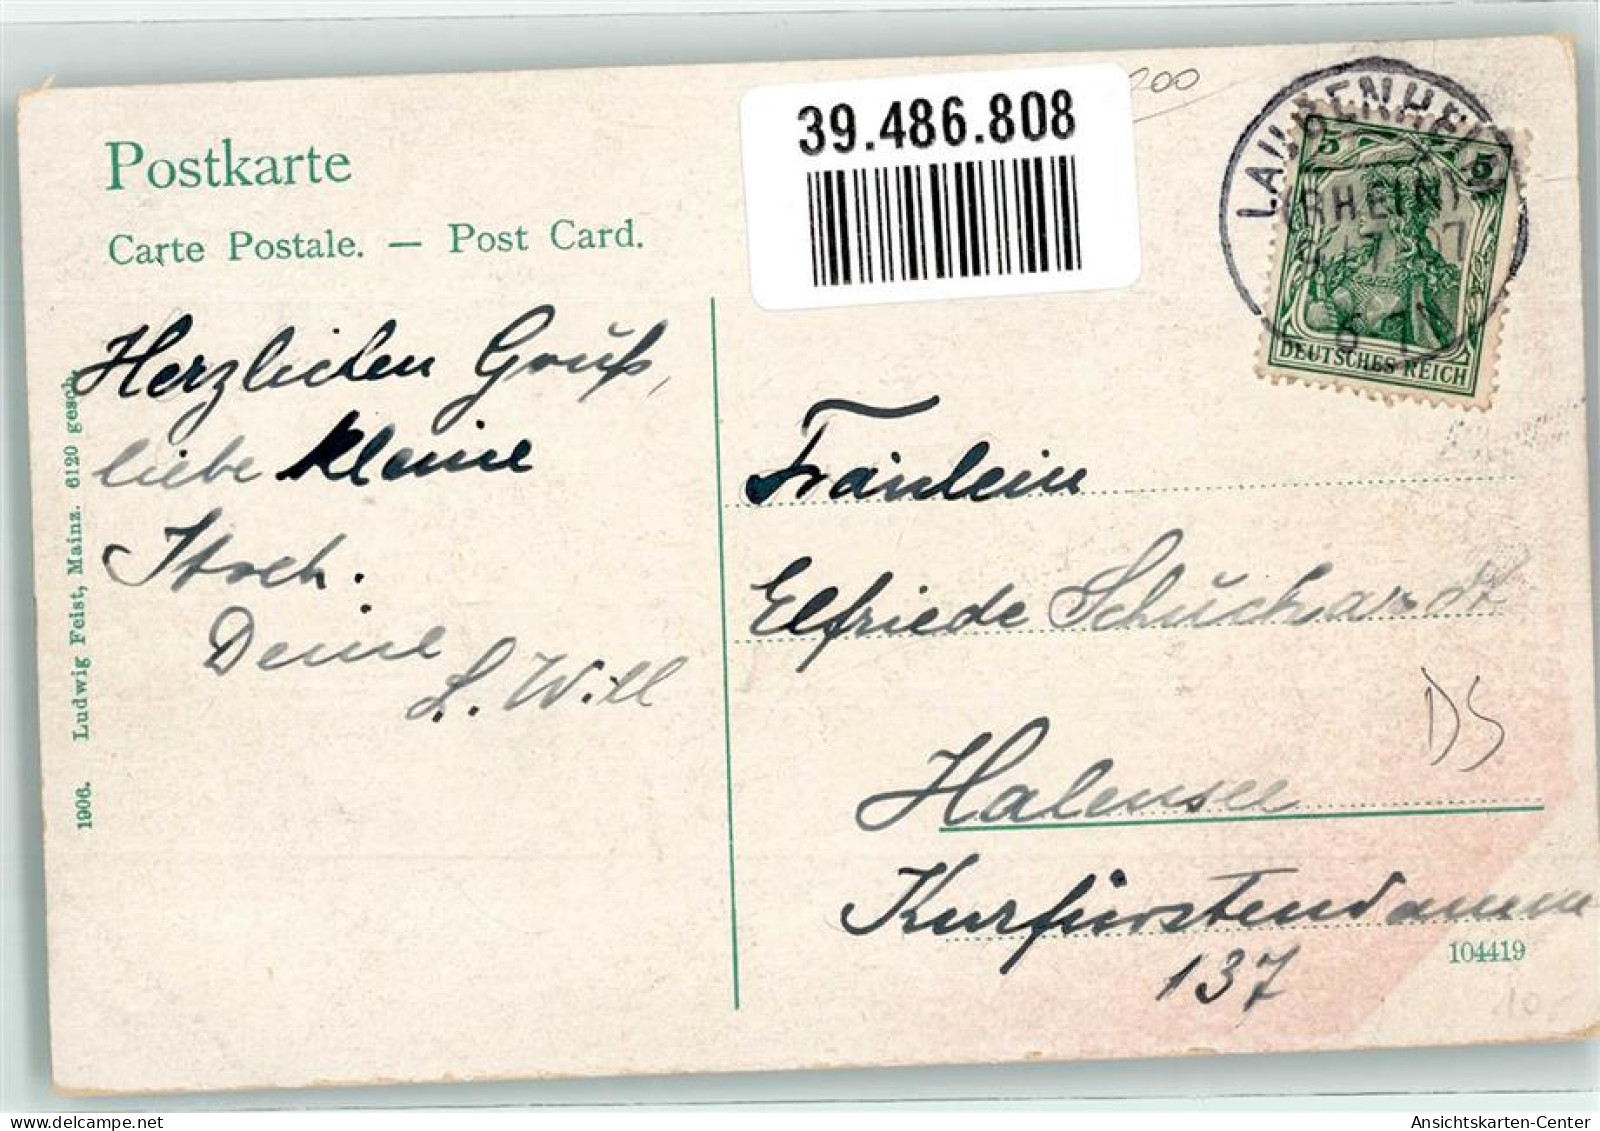 Postkarte
Carte Postale. — Post Card.
39.486.808
200
LAUBENHEIM
(RHEIN)
7 07
DEUTSCHES REICH
5 5
Herzlichen Gruß,
liebe kleine
Storch.
Deine
L. Will
Fräulein
Elfriede Schuchardt
Halensee
Kurfürstendamm
137
DS
104419
10.-
1906. Ludwig Feist, Mainz. 6120 gesch.
Ansichtskarten-Center